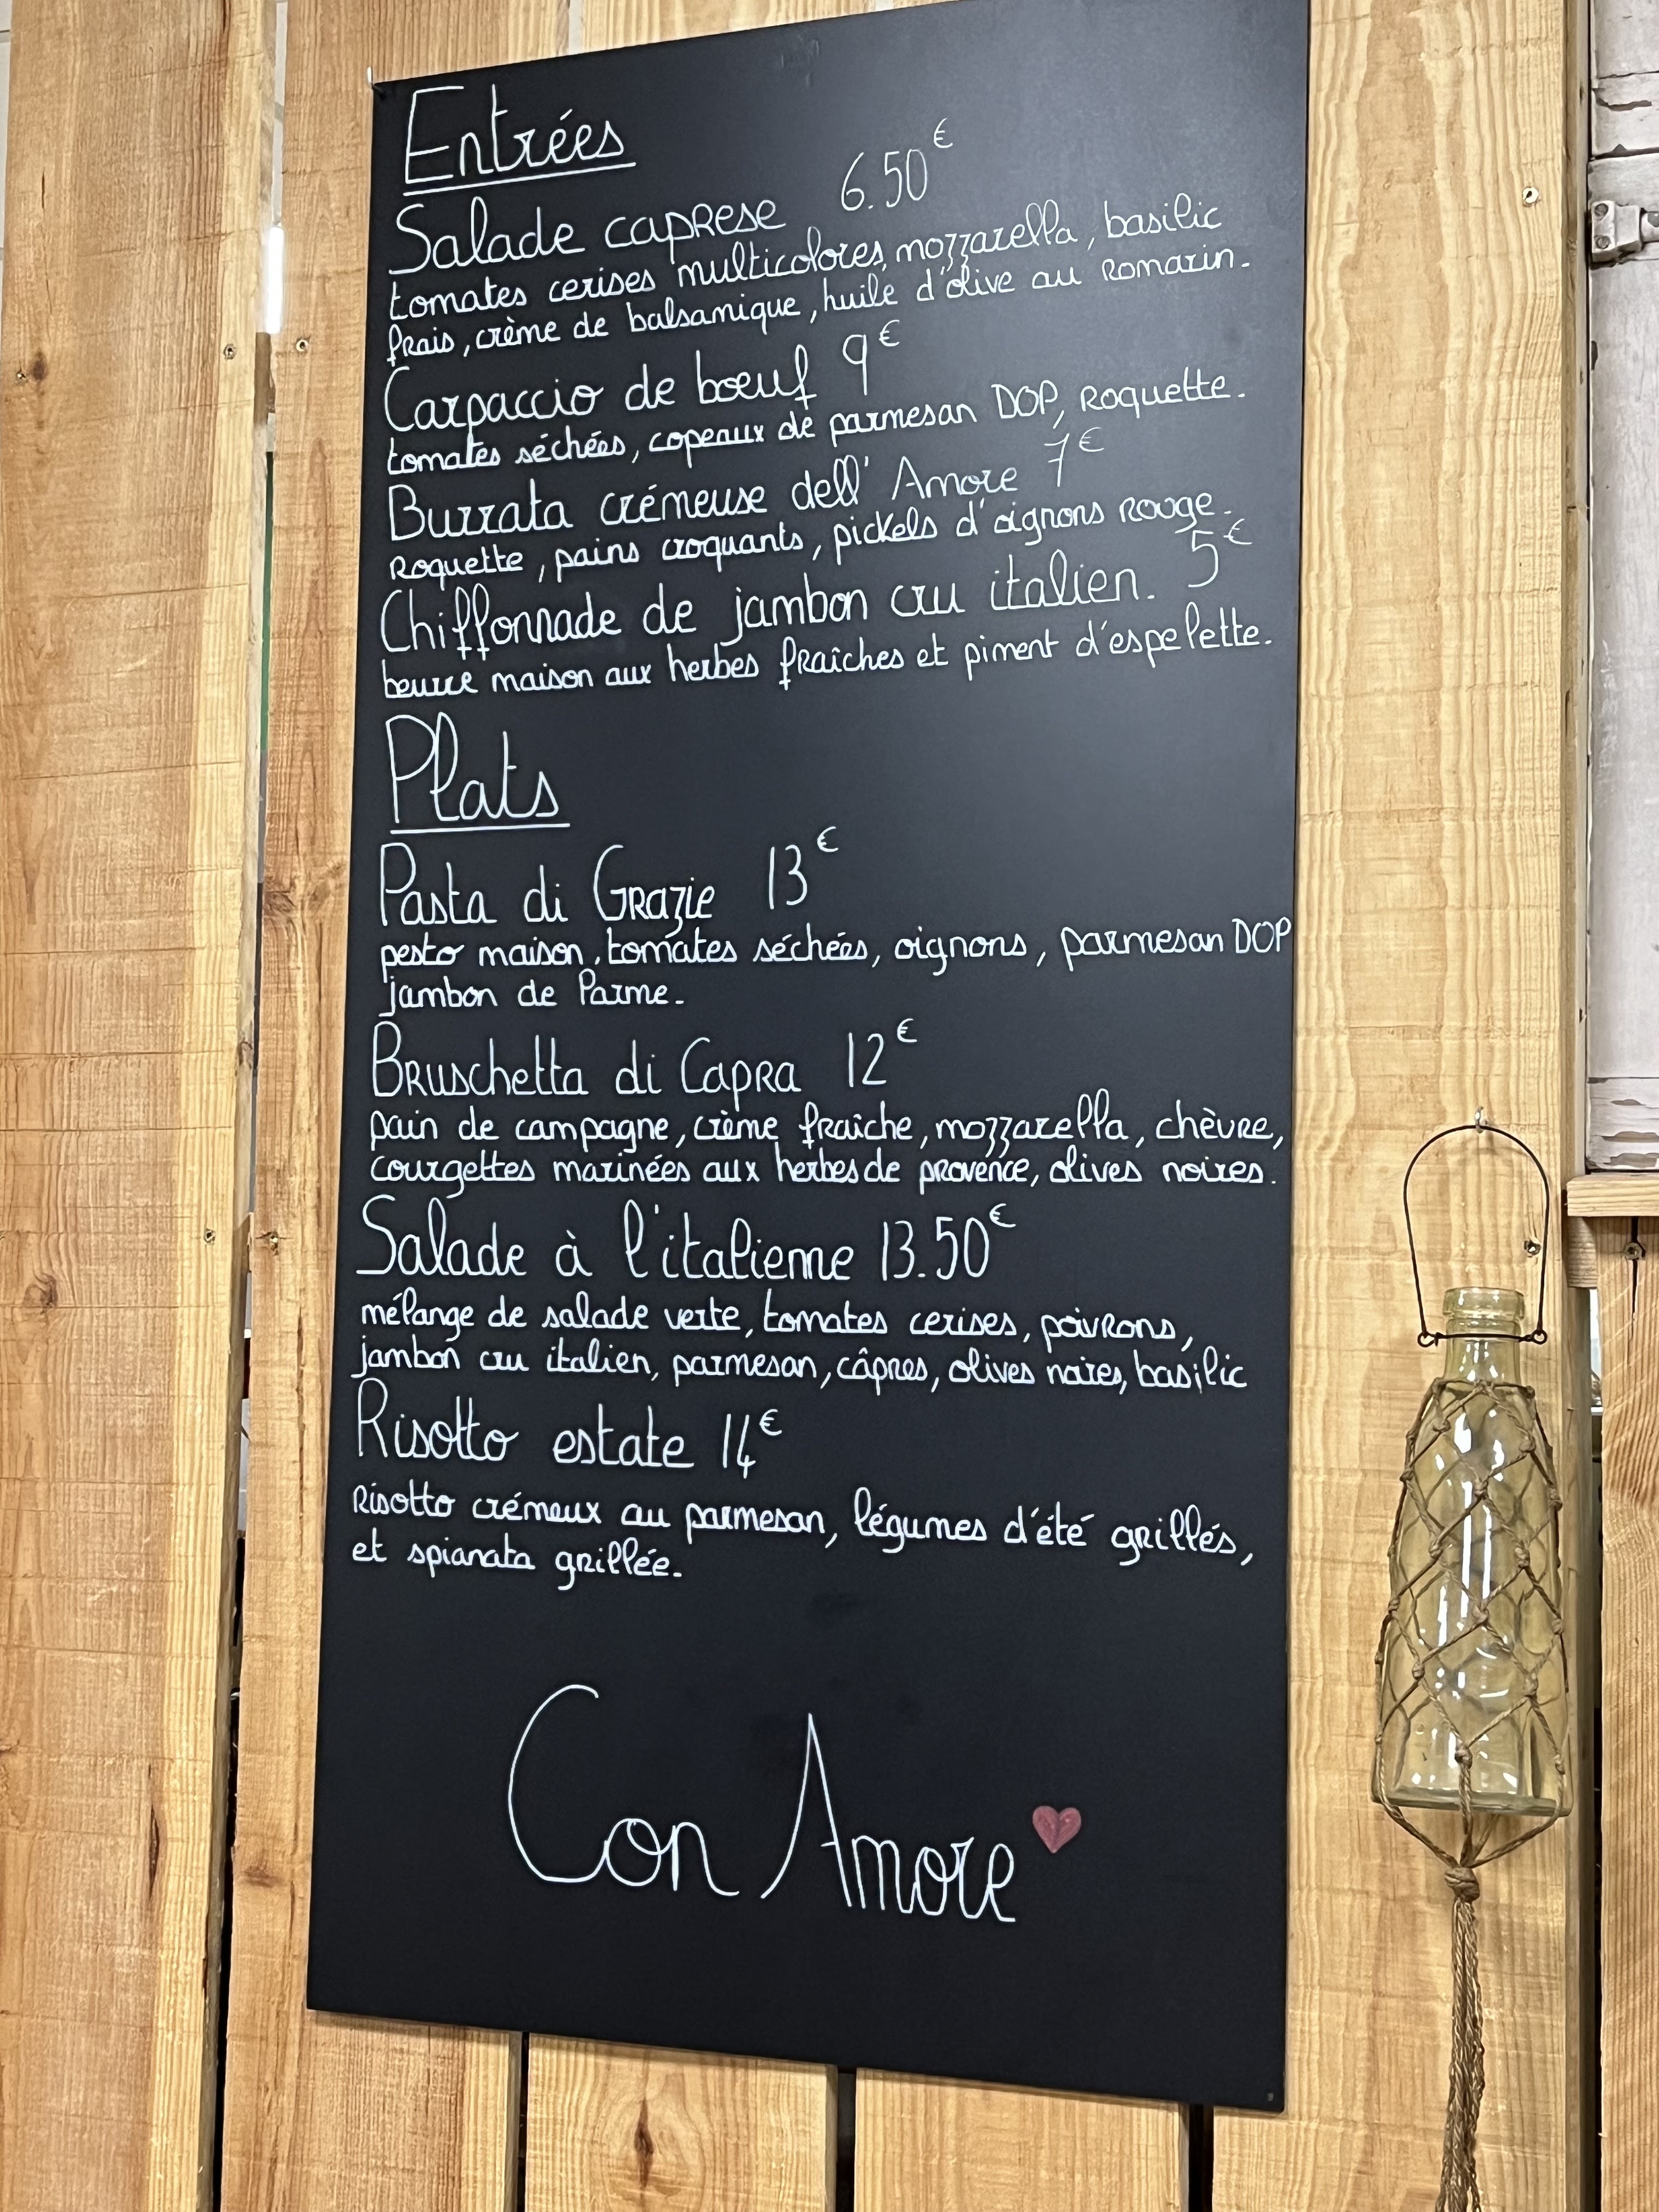 Entrées
Salade caprese 6.50€
tomates cerises multicolores, mozzarella, basilic
frais, crème de balsamique, huile d'olive au romarin.
Carpaccio de boeuf 9€
tomates séchées, copeaux de parmesan DOP, roquette.
Burrata crémeuse dell' Amore 7€
Roquette, pains croquants, pickels d'oignons rouge.
Chiffonnade de jambon cru italien. 5€
beurre maison aux herbes fraîches et piment d'espelette.
Plats
Pasta di Grazie 13€
pesto maison, tomates séchées, oignons, parmesan DOP
jambon de Parme.
Bruschetta di Capra 12€
pain de campagne, crème fraîche, mozzarella, chèvre,
courgettes marinées aux herbes de provence, olives noires.
Salade à l'italienne 13.50€
mélange de salade verte, tomates cerises, poivrons,
jambon cru italien, parmesan, câpres, olives noires, basilic
Risotto estate 14€
Risotto crémeux au parmesan, légumes d'été grillés,
et spianata grillée.
Con Amore